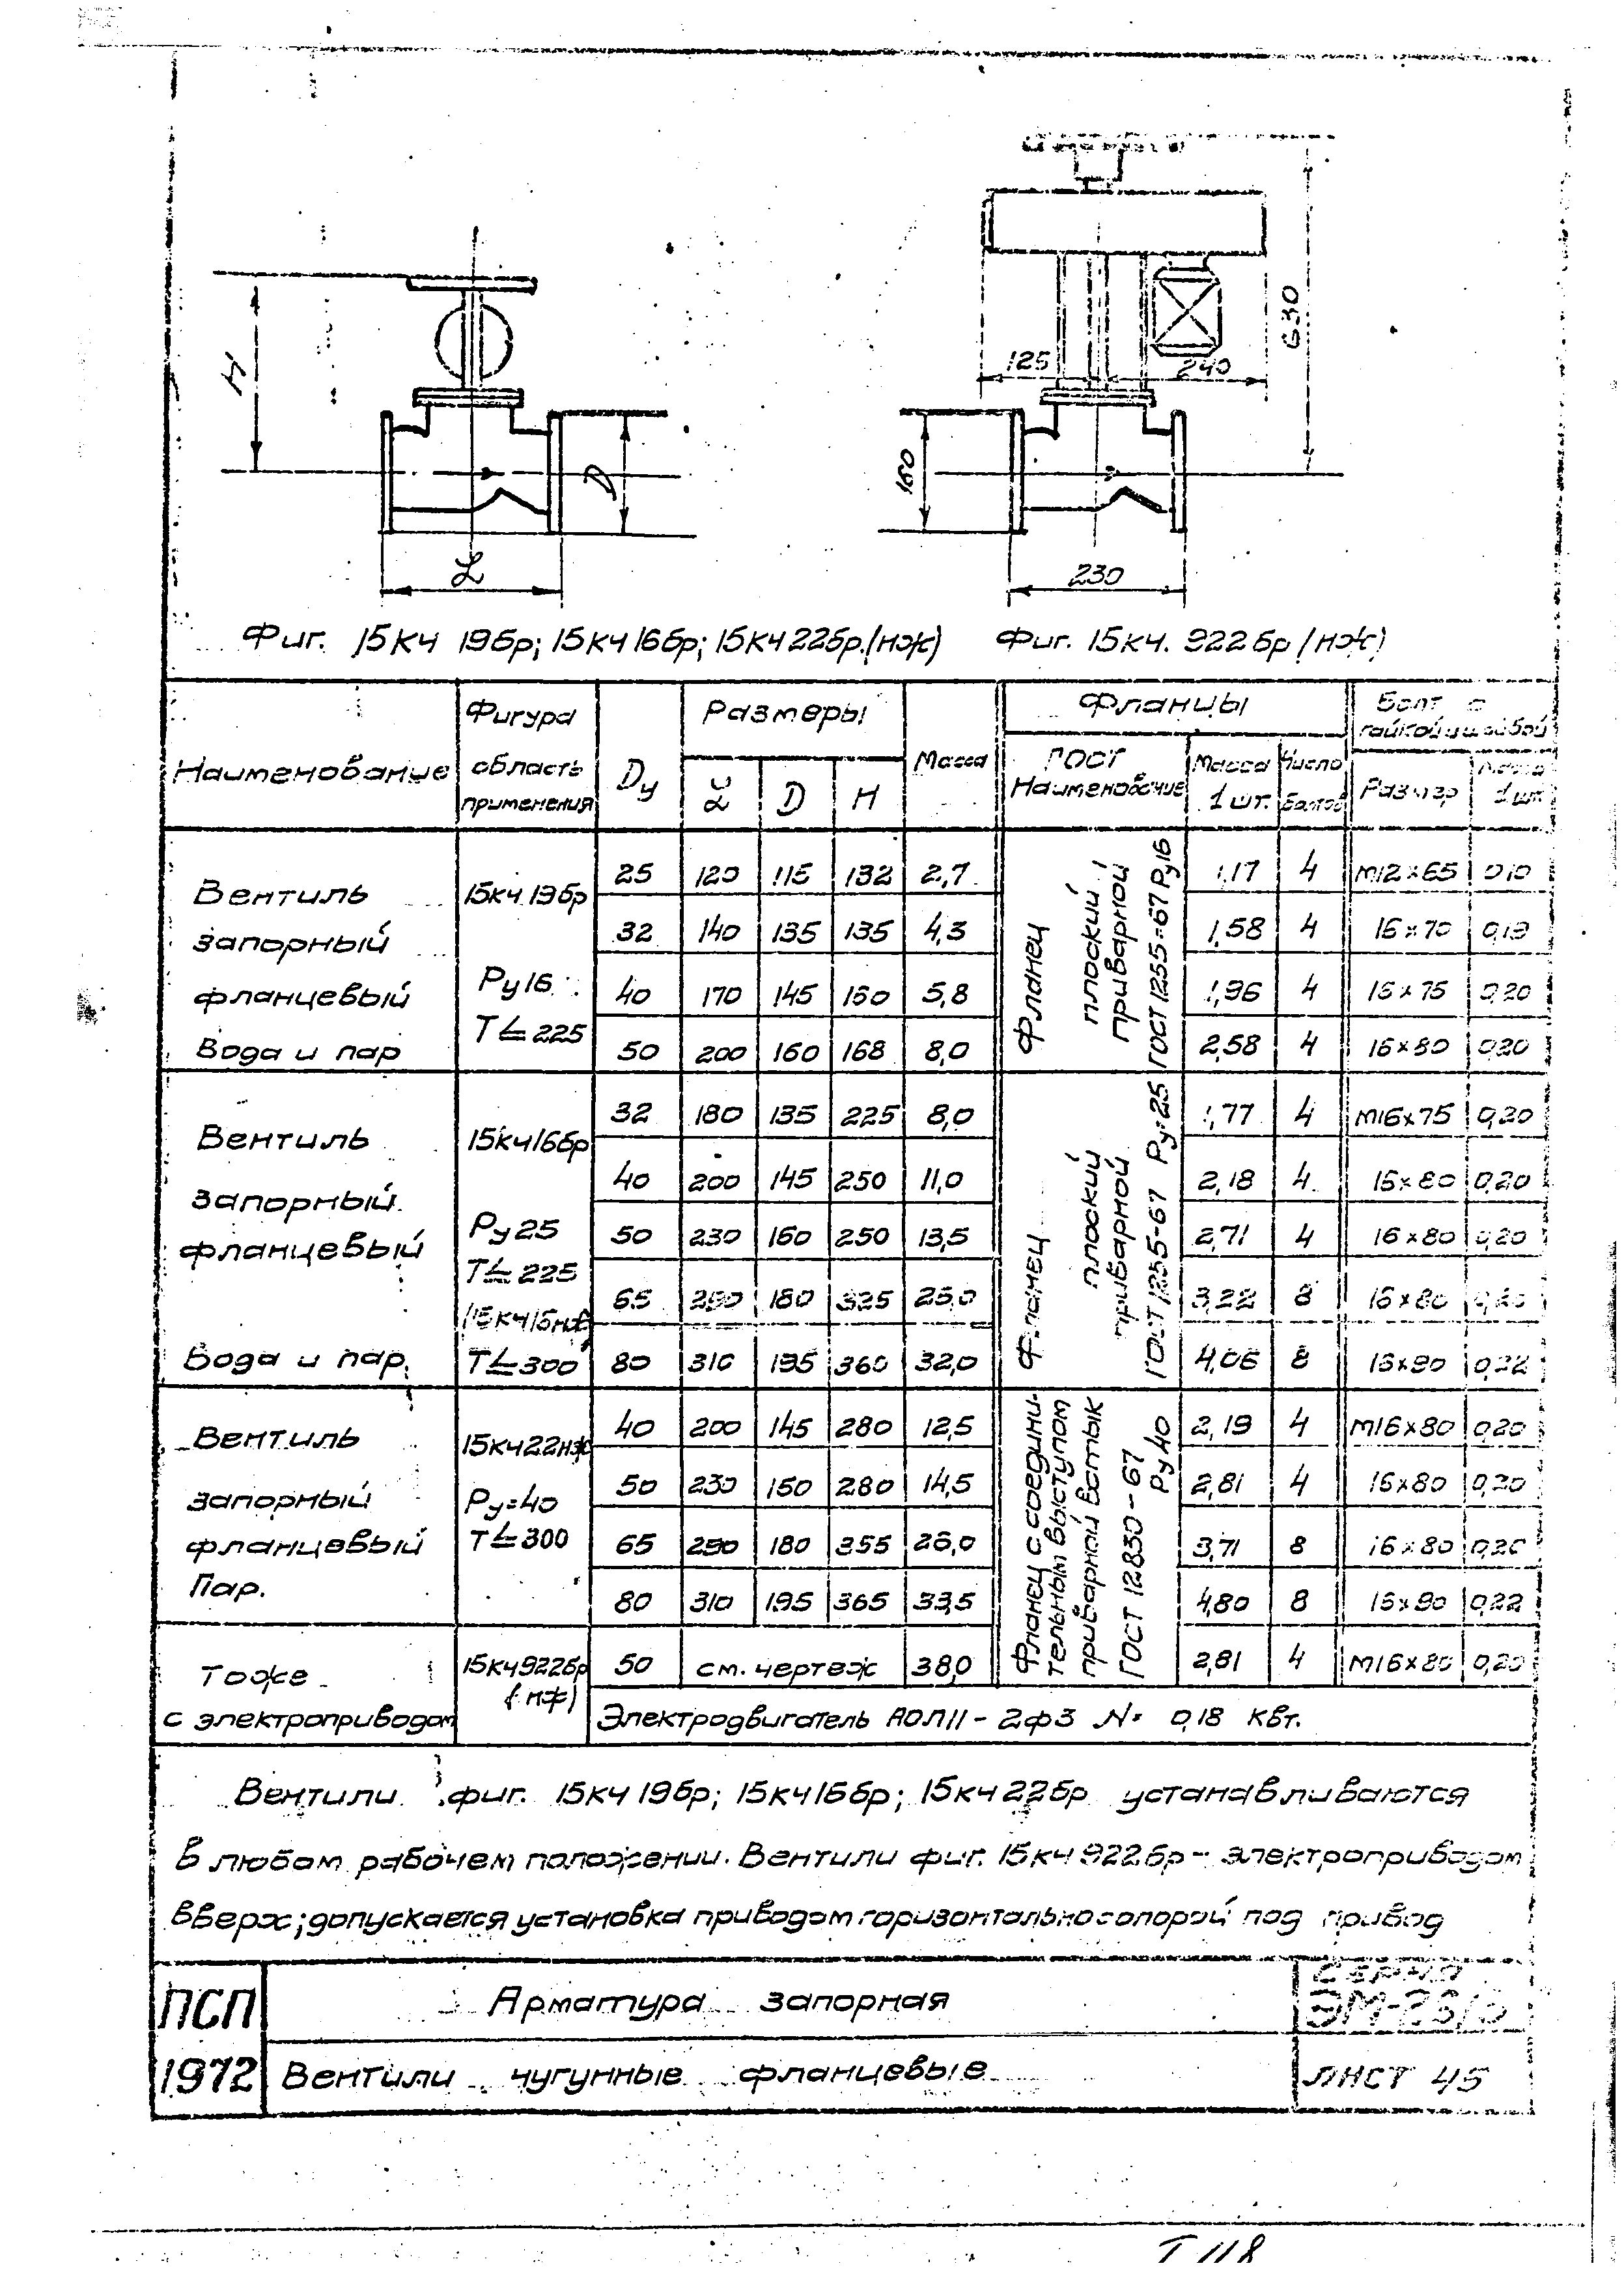 630
125
240
H
D
160
L
230
Фиг. 15кч 19бр; 15кч 16бр; 15кч 22бр.(нж) Фиг. 15кч. 922бр (нж)
Наименование Фигура область применения Dу Размеры L D H Масса Фланцы ГОСТ Наименование Масса 1 шт. Число болтов Болт с гайкой и шайбой Размер Масса 1 шт.
Вентиль запорный фланцевый Вода и пар
15кч 19бр Ру16 T ≤ 225
Фланец плоский приварной ГОСТ 1255-67 Ру16
25 120 115 132 2,7 1,17 4 М12×65 0,10
32 140 135 135 4,3 1,58 4 16×70 0,19
40 170 145 160 5,8 1,96 4 16×75 0,20
50 200 160 168 8,0 2,58 4 16×80 0,20
Вентиль запорный фланцевый Вода и пар.
15кч16бр Ру25 T ≤ 225 (15кч16нж T ≤ 300
Фланец плоский приварной ГОСТ 1255-67 Ру=25
32 180 135 225 8,0 1,77 4 М16×75 0,20
40 200 145 250 11,0 2,18 4 16×80 0,20
50 230 160 250 13,5 2,71 4 16×80 0,20
65 290 180 325 25,0 3,22 8 16×80 0,20
80 310 195 360 32,0 4,06 8 16×90 0,22
Вентиль запорный фланцевый Пар.
15кч22нж Ру=40 T ≤ 300
Фланец с соедини-
тельным выступом
приварной встык
ГОСТ 12830-67
Ру40
40 200 145 280 12,5 2,19 4 М16×80 0,20
50 230 160 280 14,5 2,81 4 16×80 0,20
65 290 180 355 26,0 3,71 8 16×80 0,20
80 310 195 365 33,5 4,80 8 16×90 0,22
Тоже с электроприводом 15кч922бр (нж) 50 см. чертеж 38,0 2,81 4 М16×80 0,20
Электродвигатель АОЛ11-2ф3 N= 0,18 квт.
Вентили фиг. 15кч 19бр; 15кч16бр; 15кч 22бр устанавливаются
в любом рабочем положении. Вентили фиг. 15кч 922бр - электроприводом
вверх; допускается установка приводом горизонтально с опорой под привод
ПСП Арматура запорная Серия
1972 Вентили чугунные фланцевые ЛИСТ 45
Т 118